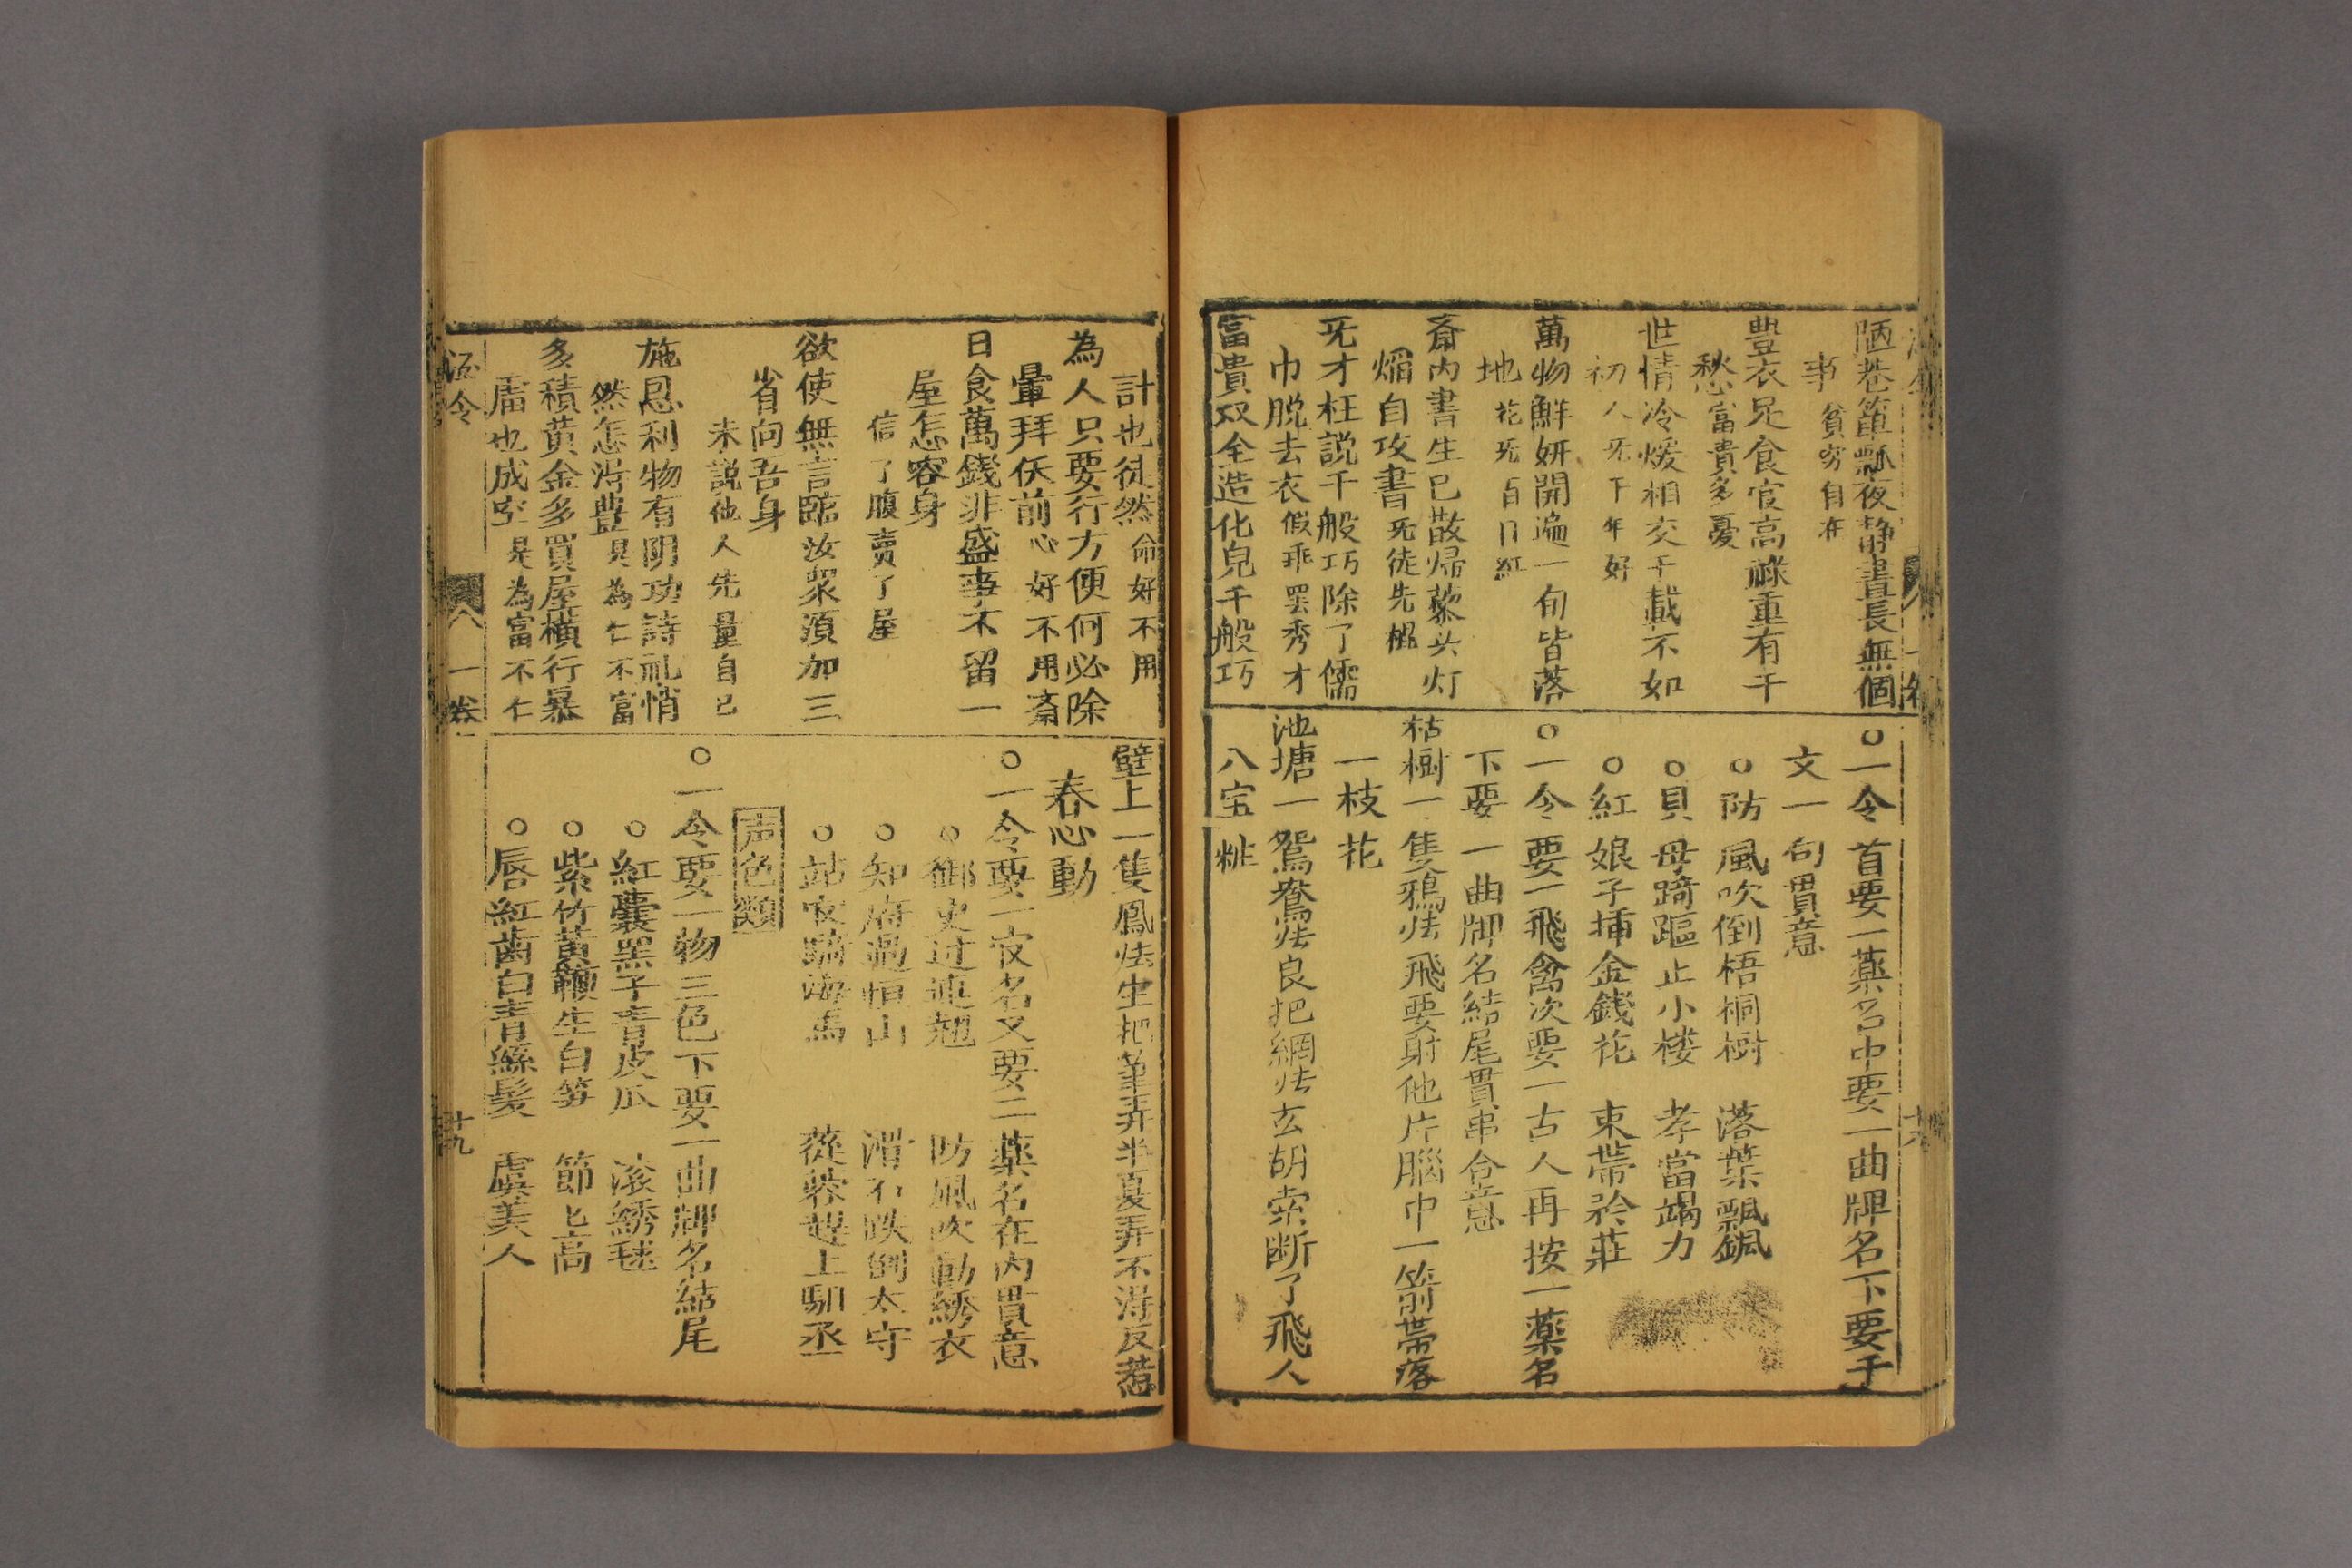 陋巷簞瓢夜静晝長無個
事 貧窮自在
豐衣足食官高祿重有千
愁 富貴多憂
世情冷煖相交千載不如
初 人旡千年好
萬物鮮妍開遍一旬皆落
地 花旡百日紅
齋內書生已散歸藜头灯
焰自攻書 旡徒先棍
旡才枉説千般巧除了儒
巾脱去衣 假乖罢秀才
富貴双全造化兒千般巧
○一令首要一薬名中要一曲牌名下要千
文一句貫意
○防風吹倒梧桐樹 落葉飄飖
○貝母蹄躯止小楼 孝當竭力
○紅娘子揷金錢花 束帶矜莊
○一令要一飛禽次要一古人再按一薬名
下要一曲牌名結尾貫串合意
枯樹一隻鴉怯飛要射他片腦中一箭帶落
一枝花
池塘一鴛鴦怯良把網怯玄胡索断了飛人
八宝粧
計也徒然 命好不用
為人只要行方便何必除
暈拜佛前 心好不用齋
日食萬錢非盛事不留一
屋怎容身
信了腹賣了屋
欲使無言臨汝衆須加三
省向吾身
未説他人先量自己
施恩利物有阴功詩礼悄
然怎淂豊 見為仁不富
多積黄金多買屋橫行暴
虐也成空 是為富不仁
壁上一隻鳳怯生把筆弄半夏弄不淂反惹
春心動
○一令要一官名又要二薬名在內貫意
○御史过連翘 防風吹動綉衣
○知府過恒山 滑石跌倒太守
○站官騎海馬 蓯蓉趕上馹丞
声色類
○一令要一物三色下要一曲牌名結尾
○紅囊黑子青皮瓜 滚綉毬
○紫竹黄鞭生白笋 節上高
○唇紅齒白青絲髪 虞美人
酒令 八 一卷 十九